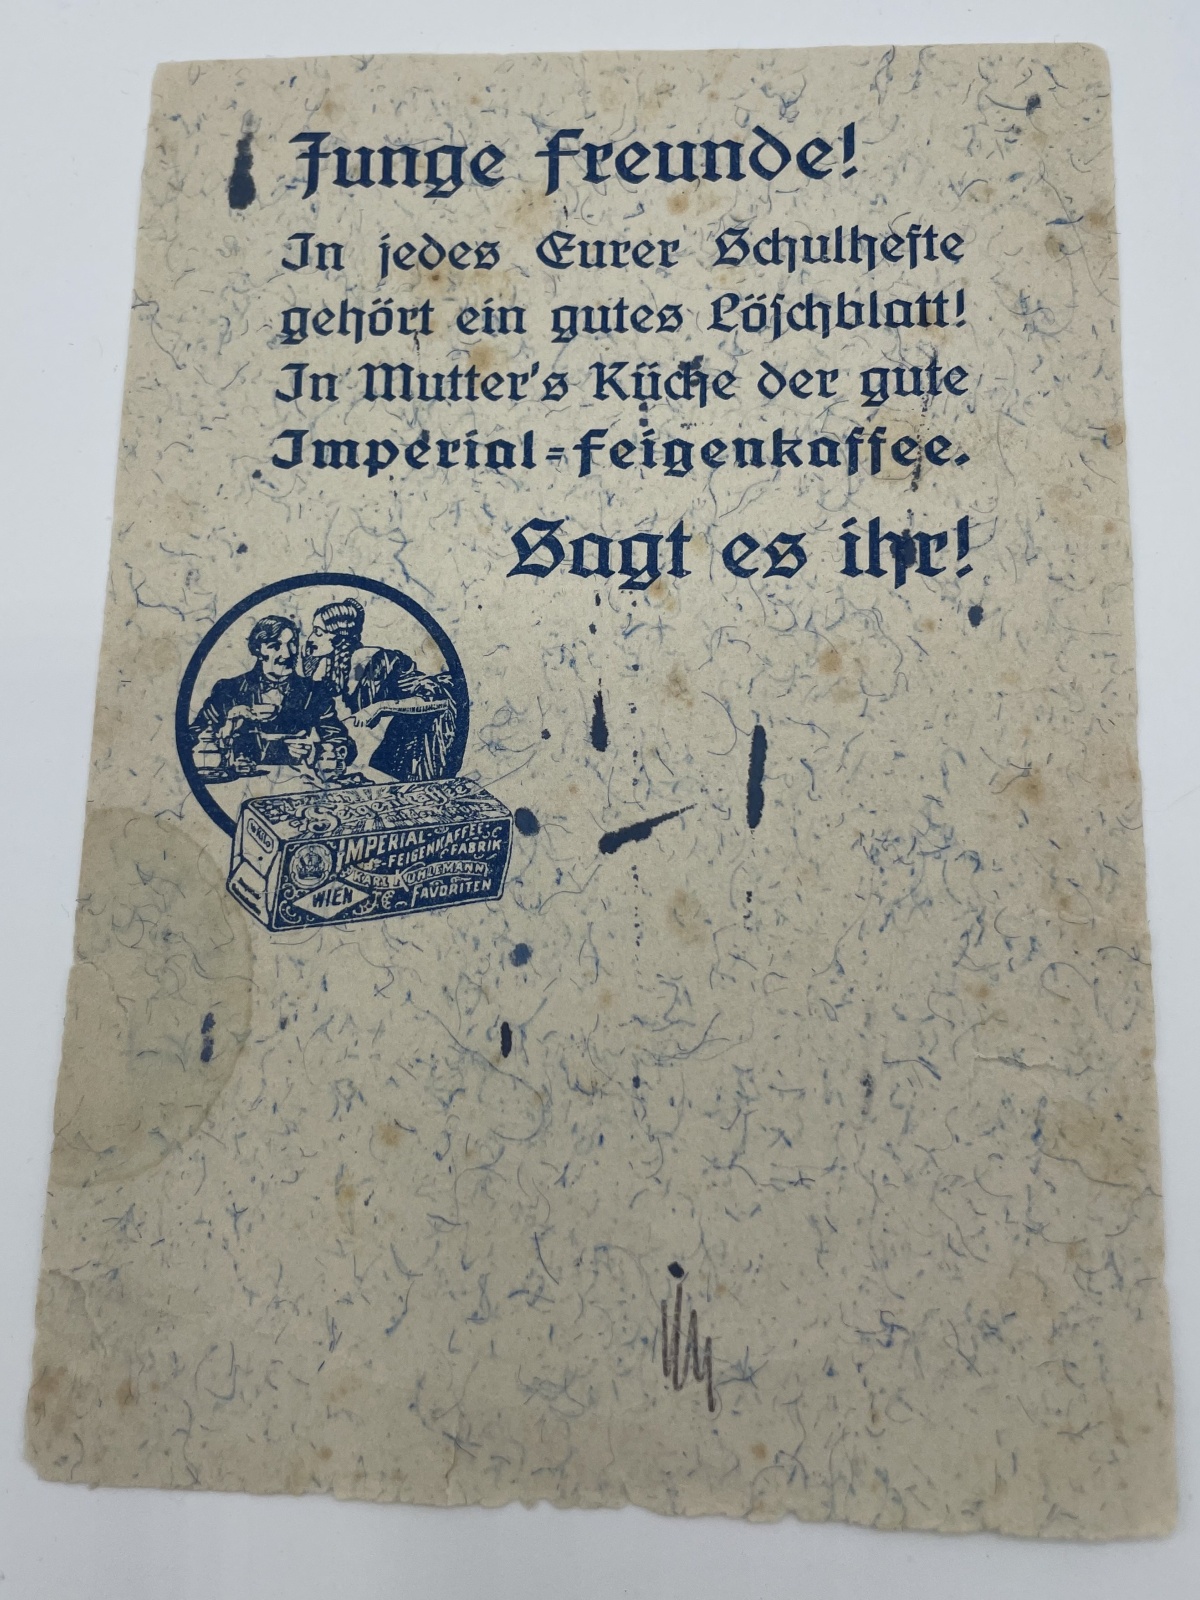 Junge Freunde!
In jedes Eurer Schulhefte
gehört ein gutes Löschblatt!
In Mutter's Küche der gute
Imperial-Feigenkaffee.
Sagt es ihr!
Feigenkaffee
IMPERIAL-
KAFFEE
-FEIGEN
FABRIK
KARL KUHLEMANN
WIEN
FAVORITEN